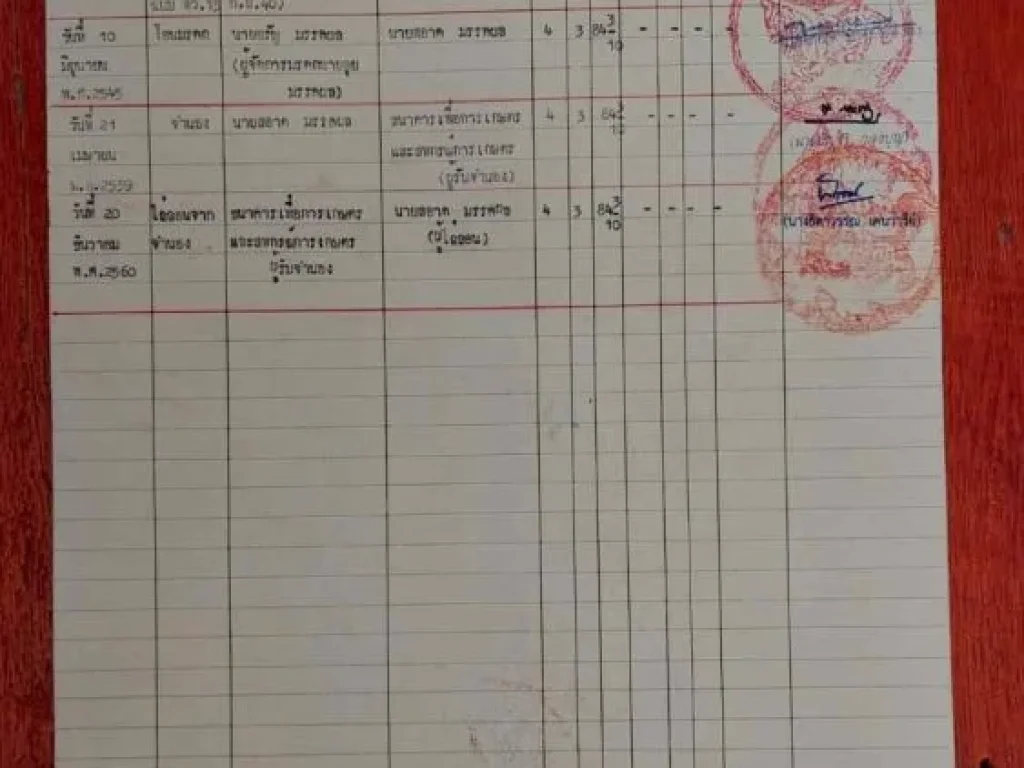 วันที่ 10 โอนมรดก นายอรัญ มรรคผล นายสอาด มรรคผล 4 3 84 3/10 - - - -
มิถุนายน (ผู้จัดการมรดกนายจูย
พ.ศ.2545 มรรคผล)
วันที่ 21 จำนอง นายสอาด มรรคผล ธนาคารเพื่อการเกษตร 4 3 84 3/10 - - - -
เมษายน และสหกรณ์การเกษตร
พ.ศ.2559 (ผู้รับจำนอง)
วันที่ 20 ไถ่ถอนจาก ธนาคารเพื่อการเกษตร นายสอาด มรรคผล 4 3 84 3/10 - - - -
ธันวาคม จำนอง และสหกรณ์การเกษตร (ผู้ไถ่ถอน)
พ.ศ.2560 ผู้รับจำนอง